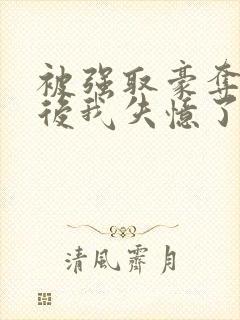 被強取豪奪
後我失憶了
清風霽月